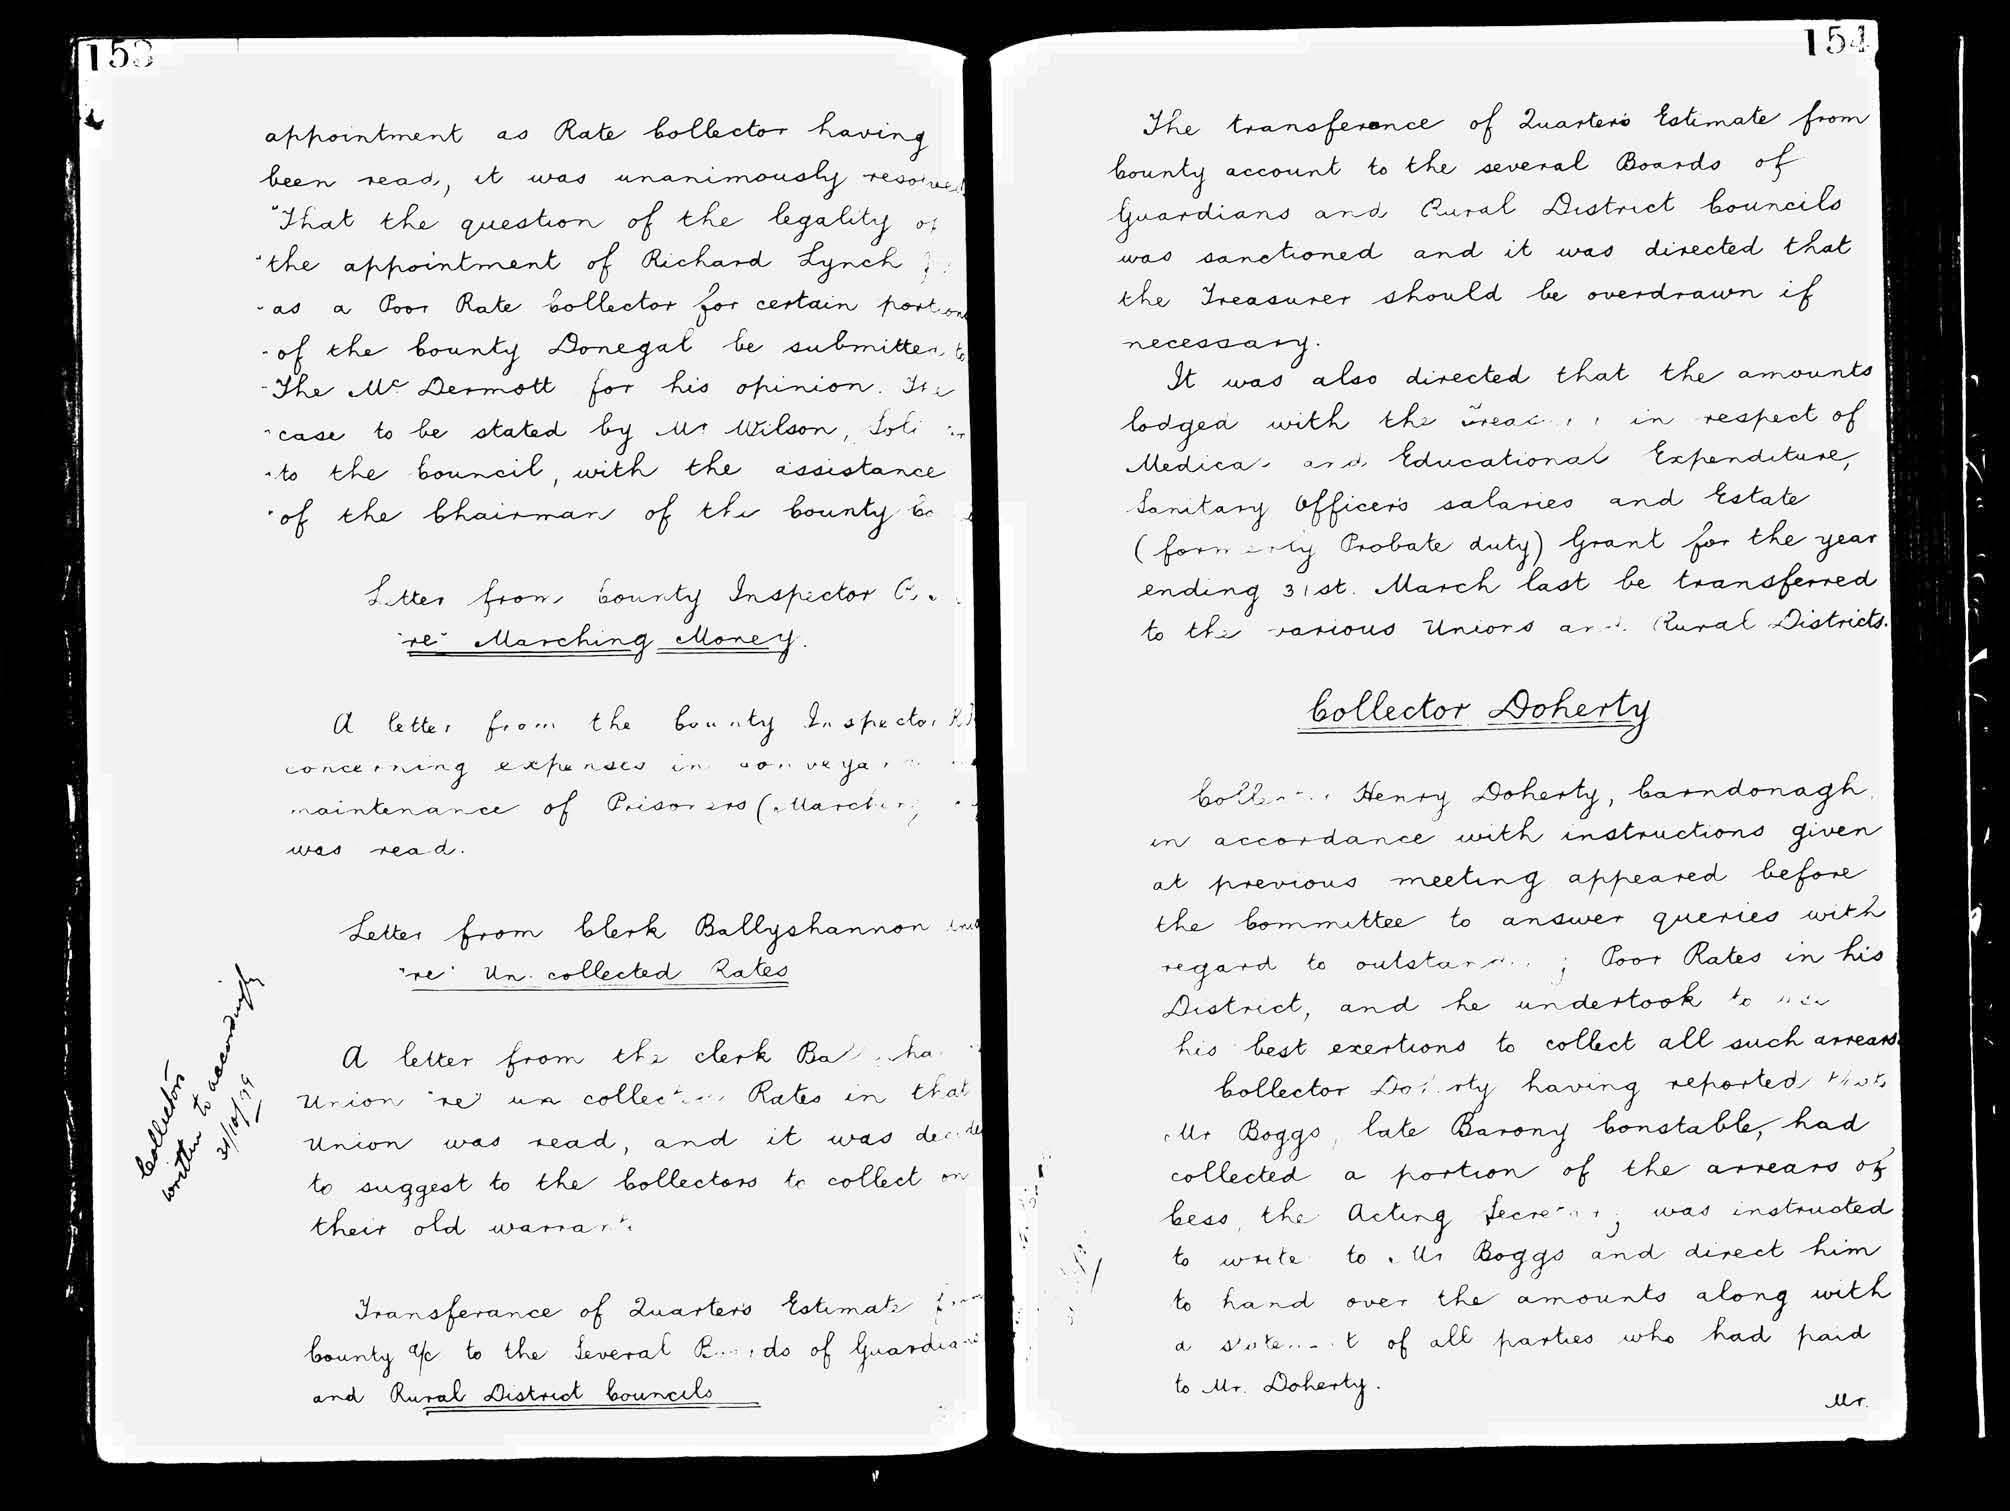 153
appointment as Rate Collector having
been read, it was unanimously resolved
"That the question of the legality of
"the appointment of Richard Lynch
"as a Poor Rate Collector for certain portions
"of the County Donegal be submitted to
"The McDermott for his opinion. The
"case to be stated by Mr Wilson,
"to the Council, with the assistance
"of the Chairman of the County
Letter from County Inspector
"re" Marching Money.
A letter from the County Inspector
concerning expenses in
maintenance of Prisoners (Marching
was read.
Letter from Clerk Ballyshannon
"re" Un-collected Rates
A letter from the Clerk
Union "re" un collected Rates in that
Union was read, and it was decided
to suggest to the Collectors to collect on
their old warrants.
Collectors
written to accordingly
31/10/99
Transferance of Quarter's Estimate from
County a/c to the Several Boards of Guardians
and Rural District Councils
154
The transferance of Quarter's Estimate from
County account to the several Boards of
Guardians and Rural District Councils
was sanctioned and it was directed that
the Treasurer should be overdrawn if
necessary.
It was also directed that the amounts
lodged with the Treasurer in respect of
Medical and Educational Expenditure,
Sanitary Officers salaries and Estate
(formerly Probate duty) Grant for the year
ending 31st. March last be transferred
to the various Unions and Rural Districts.
Collector Doherty
Collector Henry Doherty, Carndonagh,
in accordance with instructions given
at previous meeting appeared before
the Committee to answer queries with
regard to outstanding Poor Rates in his
District, and he undertook to use
his best exertions to collect all such arrears.
Collector Doherty having reported that
Mr Boggs, late Barony Constable, had
collected a portion of the arrears of
Cess, the Acting Secretary was instructed
to write to Mr Boggs and direct him
to hand over the amounts along with
a statement of all parties who had paid
to Mr. Doherty.
Mr.